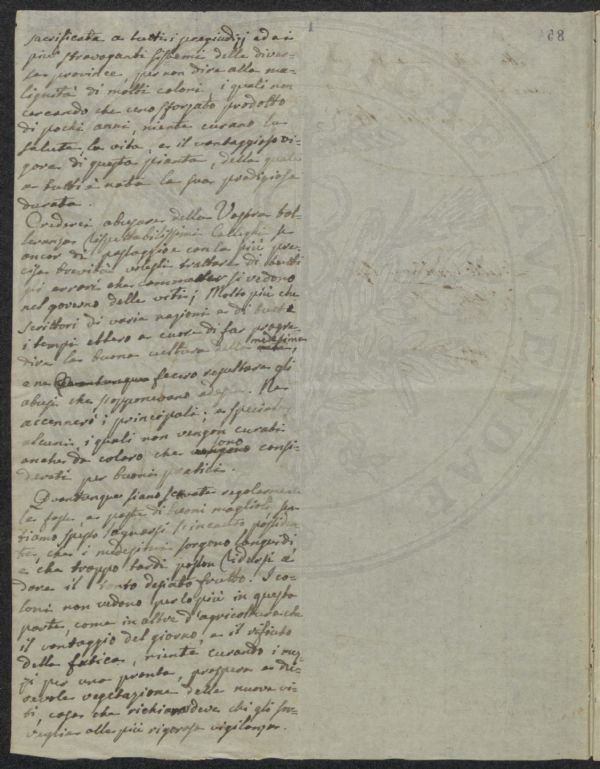 sacrificata a tutti i pregiudizj ed ai
più stravaganti sistemi delle diver-
se provincie, per non dire alla ma-
lignità di molti coloni, i quali non
cercando che uno sforzato prodotto
di pochi anni, niente curano la
salute, la vita, e il vantaggioso vi-
gore di questa pianta, della quale
a tutti è nota la sua prodigiosa
durata.
Crederei abusare della Vostra tol-
leranza Rispettabilissimi Colleghi se
ancor di passaggio e con la più pre-
cisa brevità volessi trattare di tutti
gli errori che commettersi vedono
nel governo delle viti; Molto più che
scrittori di varie nazioni e di tutti
i tempi ebbero a cuore di far progre-
dire la buona cultura della medesima
e ne fecero risultare gli
abusi che si oppongono ad essa. Ne
accennerò i principali; e specialm.
alcuni, i quali non vengon curati
anche da coloro, che sono consi-
derati per buoni pratici.
Quantunque siano scavate regolarmente
le fosse, e poste di buoni maglioli, ve-
diamo spesso
che i medesimi sorgono languidi
e che troppo tardi posson ridursi a
dare il tanto desiato frutto. I co-
loni non vedono per lo più in questa
parte, come in altre d'agricoltura che
il vantaggio del giorno, e il rifiuto
della fatica, niente curando i mez-
zi per una pronta, prospera e du-
revole vegetazione delle nuove vi-
ti, cosa che richiamar deve chi gli sor-
veglia alla più rigorosa vigilanza.
85